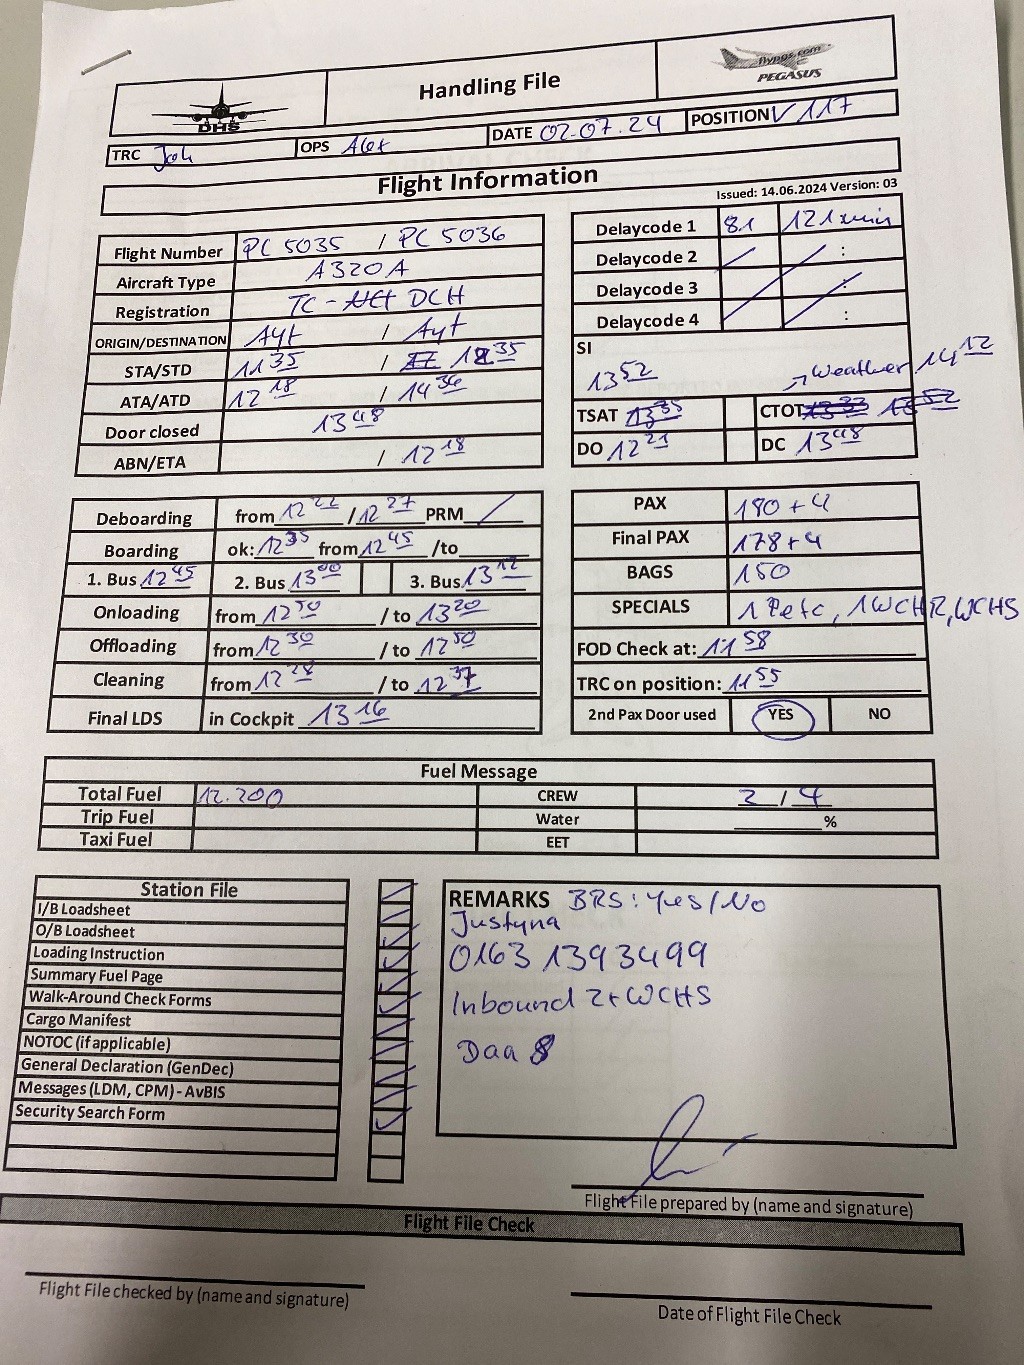 DHS
Handling File
flypgs.com
PEGASUS
TRC Joh OPS Alex DATE 02.07.24 POSITION V 117
Flight Information
Issued: 14.06.2024 Version: 03
Flight Number PC 5035 / PC 5036
Aircraft Type A320A
Registration TC - DCH
ORIGIN/DESTINATION Ayt / Ayt
STA/STD 11 35 / 12 35
ATA/ATD 12 18 / 14 36
Door closed 13 48
ABN/ETA / 12 18
Delaycode 1 81 121 min
Delaycode 2 :
Delaycode 3 :
Delaycode 4 :
SI
13 52 → Weather 14 12
TSAT 13 35 CTOT 13 33 13 52
DO 12 21 DC 13 48
Deboarding from 12 22 / 12 27 PRM /
Boarding ok: 12 35 from 12 45 /to
1. Bus 12 45 2. Bus 13 00 3. Bus 13 12
Onloading from 12 50 / to 13 20
Offloading from 12 30 / to 12 50
Cleaning from 12 28 / to 12 37
Final LDS in Cockpit 13 16
PAX 180 + 4
Final PAX 178 + 4
BAGS 150
SPECIALS 1 Petc, 1 WCHR, WCHS
FOD Check at: 11 58
TRC on position: 11 55
2nd Pax Door used YES NO
Fuel Message
Total Fuel 12.200 CREW 2 / 4
Trip Fuel Water %
Taxi Fuel EET
Station File
I/B Loadsheet
O/B Loadsheet
Loading Instruction
Summary Fuel Page
Walk-Around Check Forms
Cargo Manifest
NOTOC (if applicable)
General Declaration (GenDec)
Messages (LDM, CPM) - AvBIS
Security Search Form
REMARKS BRS: Yes/No
Justyna
0163 1393499
Inbound 2x WCHS
Daa 8
Flight File prepared by (name and signature)
Flight File Check
Flight File checked by (name and signature)
Date of Flight File Check